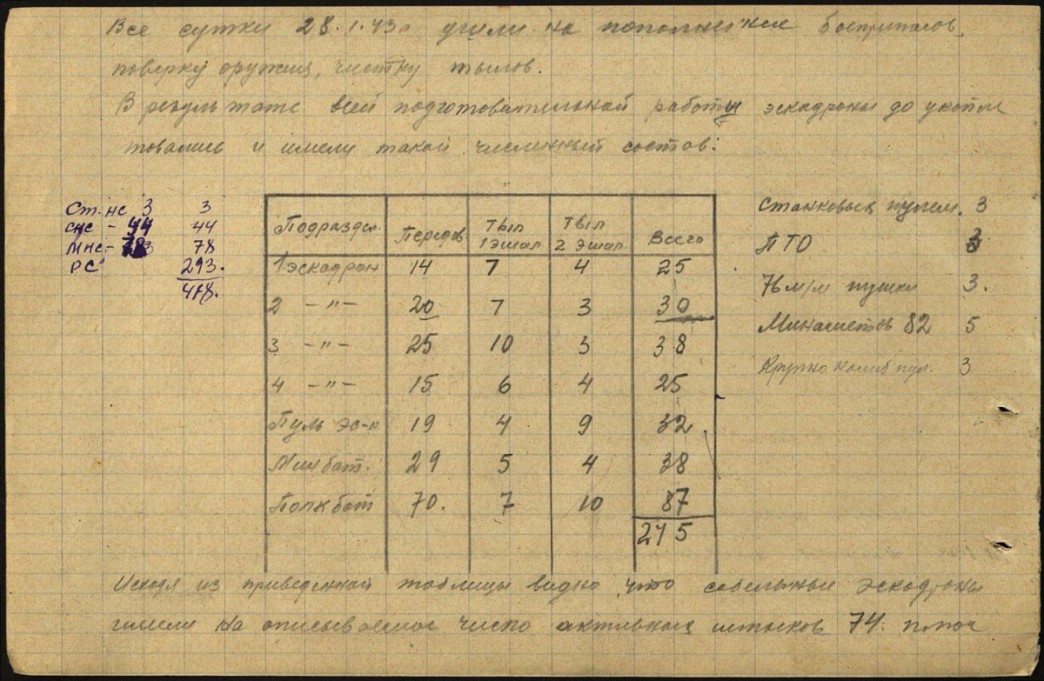 Все сутки 28.1.43 г. ушли на пополнение боеприпасов,
поверку оружия, чистку тылов.
В результате всей подготовительной работы эскадроны до укомпл
товались и имели такой численный состав:
Ст. нс 3 3
снс - 44 44
мнс - 78 78
РС 293.
418.
Подраздел. Передов. Тыл 1 эшал. Тыл 2 эшал. Всего
1 эскадрон 14 7 4 25
2 -"- 20 7 3 30
3 -"- 25 10 3 38
4 -"- 15 6 4 25
Пульэс-н 19 4 9 32
Минбат. 29 5 4 38
Полкбат 70. 7 10 87
275
Станковых пулем. 3
ПТО 3
76 м/м пушки 3.
Минометов 82 5
Крупно калиб пул. 3
Исходя из приведенной таблицы видно, что сабельные эскадроны
имели на описываемое число активных штыков 74.